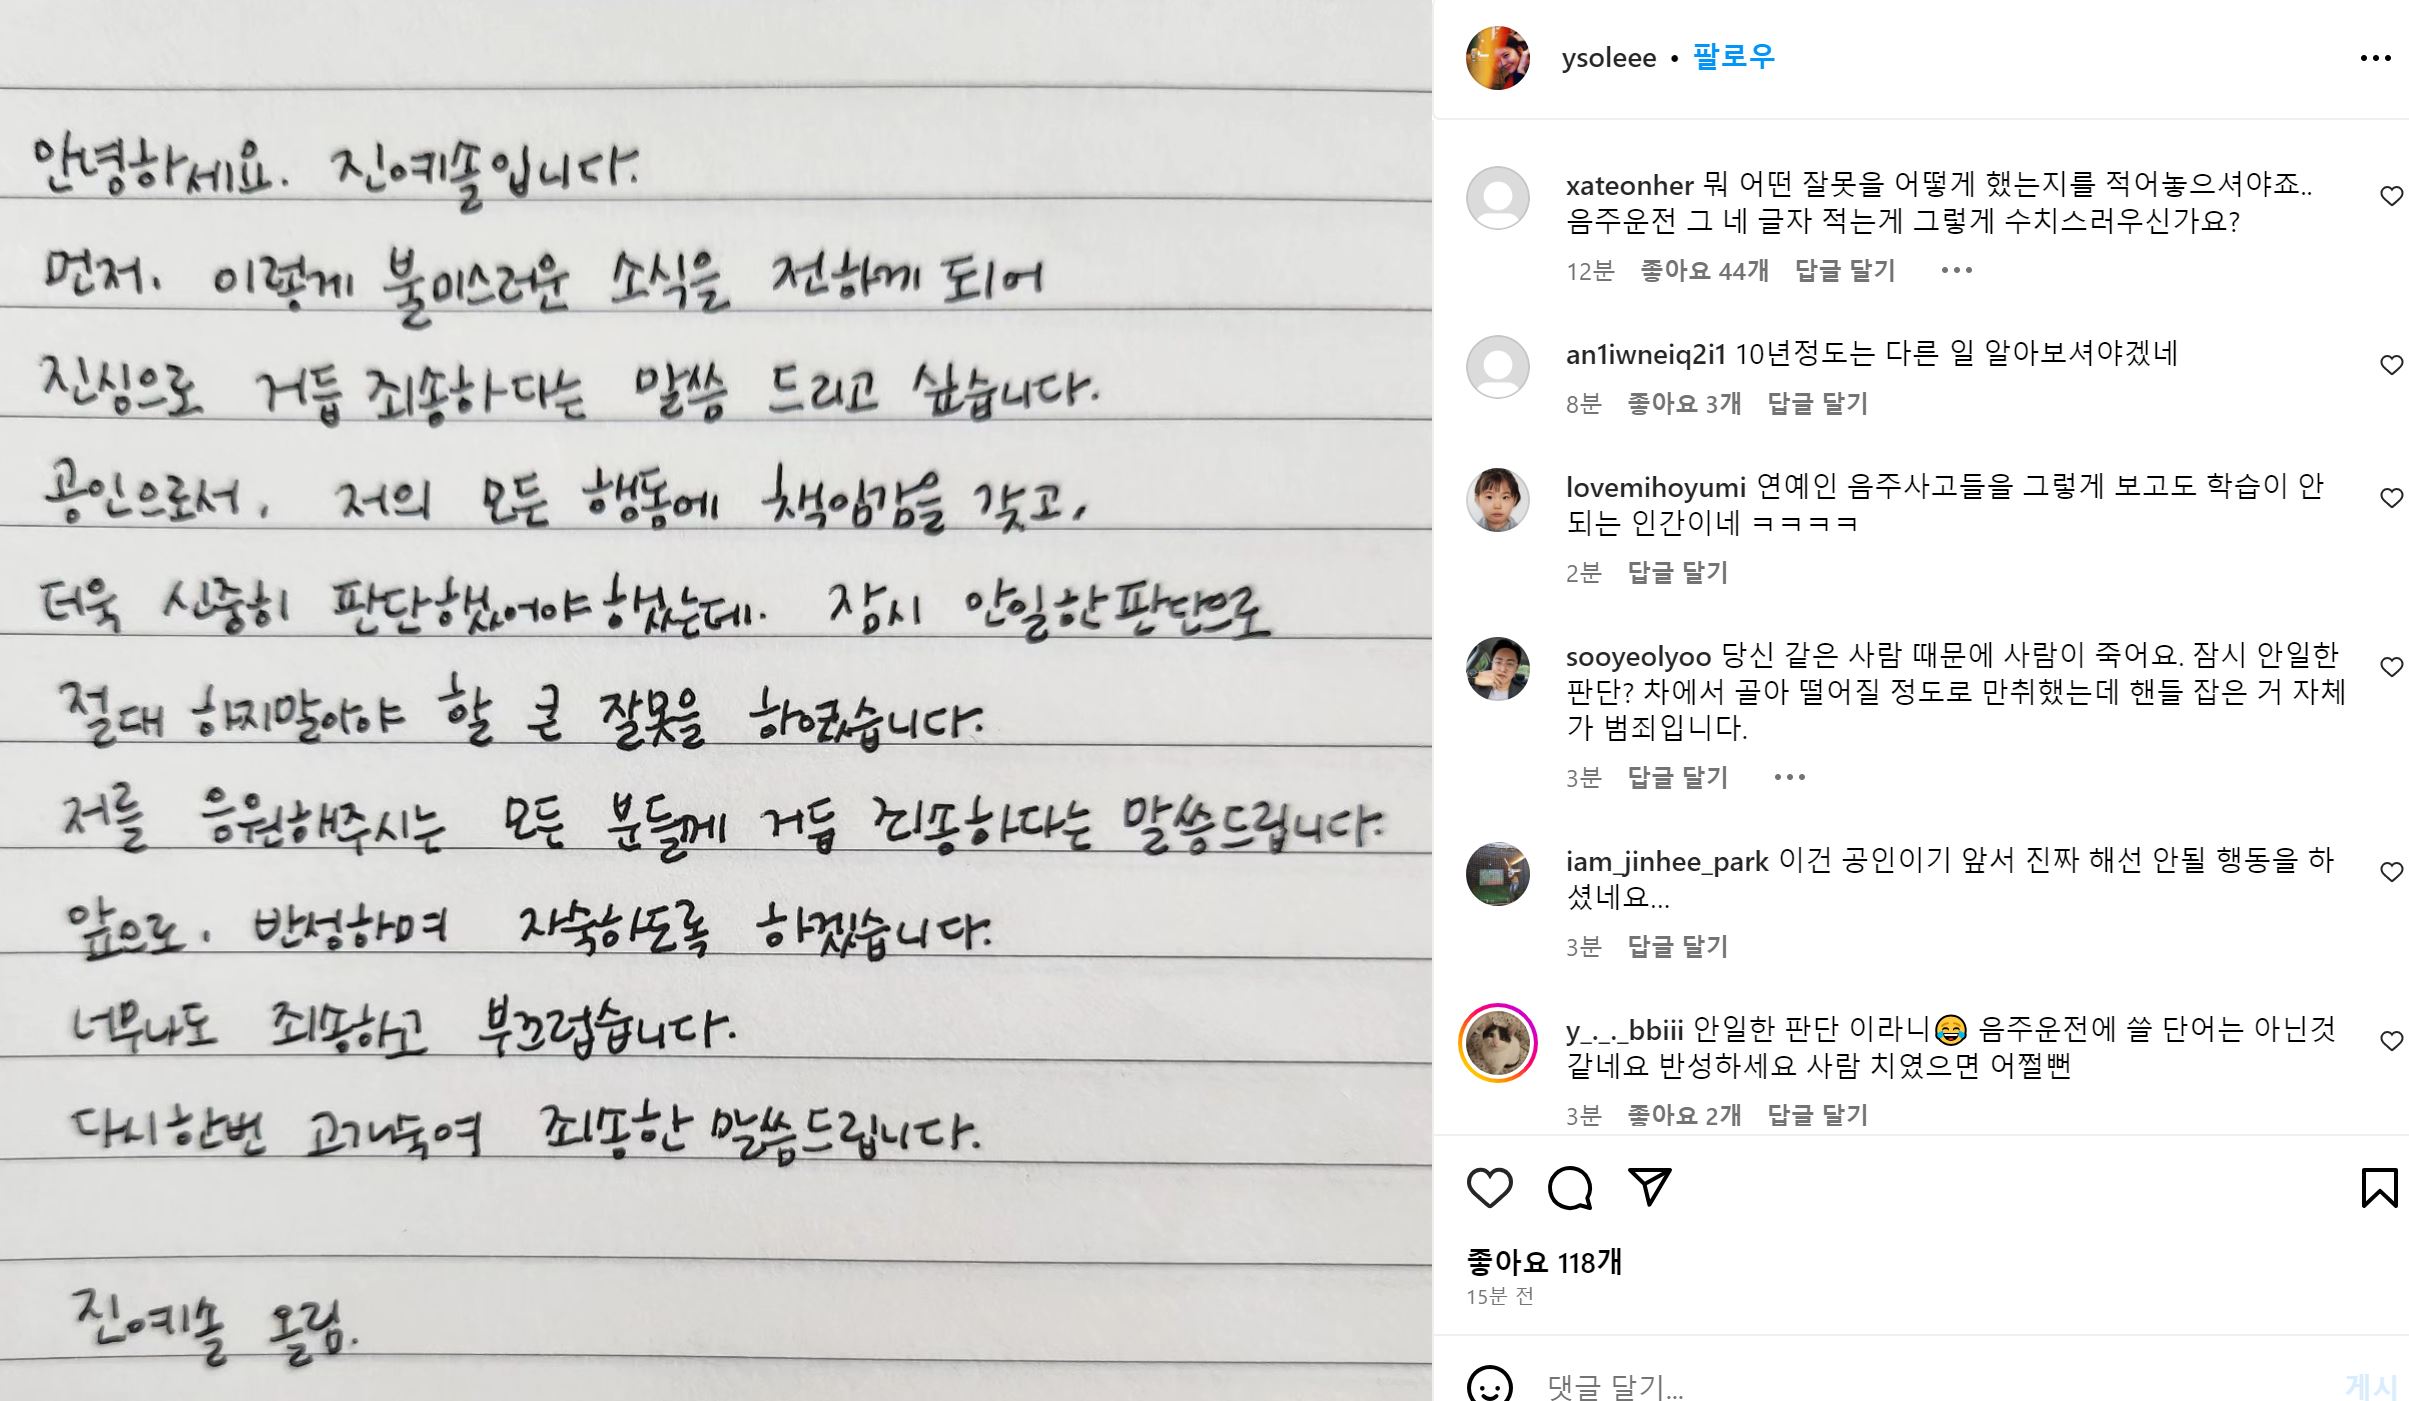 안녕하세요. 진예솔입니다.
먼저, 이렇게 불미스러운 소식을 전하게 되어
진심으로 거듭 죄송하다는 말씀 드리고 싶습니다.
공인으로서, 저의 모든 행동에 책임감을 갖고,
더욱 신중히 판단했어야 했는데. 잠시 안일한 판단으로
절대 하지말아야 할 큰 잘못을 하였습니다.
저를 응원해주시는 모든 분들께 거듭 죄송하다는 말씀드립니다.
앞으로, 반성하며 자숙하도록 하겠습니다.
너무나도 죄송하고 부끄럽습니다.
다시한번 고개숙여 죄송한 말씀드립니다.
진예솔 올림.
ysoleee • 팔로우
xateonher 뭐 어떤 잘못을 어떻게 했는지를 적어놓으셔야죠..
음주운전 그 네 글자 적는게 그렇게 수치스러우신가요?
12분 좋아요 44개 답글 달기
an1iwneiq2i1 10년정도는 다른 일 알아보셔야겠네
8분 좋아요 3개 답글 달기
lovemihoyumi 연예인 음주사고들을 그렇게 보고도 학습이 안
되는 인간이네 ㅋㅋㅋㅋ
2분 답글 달기
sooyeolyoo 당신 같은 사람 때문에 사람이 죽어요. 잠시 안일한
판단? 차에서 골아 떨어질 정도로 만취했는데 핸들 잡은 거 자체
가 범죄입니다.
3분 답글 달기
iam_jinhee_park 이건 공인이기 앞서 진짜 해선 안될 행동을 하
셨네요...
3분 답글 달기
y_._._bbiii 안일한 판단 이라니😂 음주운전에 쓸 단어는 아닌것
같네요 반성하세요 사람 치였으면 어쩔뻔
3분 좋아요 2개 답글 달기
좋아요 118개
15분 전
댓글 달기...
게시